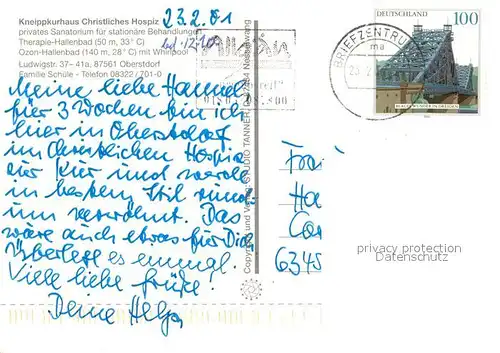 Kneippkurhaus Christliches Hospiz
privates Sanatorium für stationäre Behandlungen
Therapie-Hallenbad (50 m, 33° C)
Ozon-Hallenbad (140 m, 28° C) mit Whirlpool
Ludwigstr. 37-41a, 87561 Oberstdorf
Familie Schüle - Telefon 08322 / 701-0
23.2.01
Meine liebe Hannel
für 3 Wochen bin ich
hier in Oberstdorf
im Christlichen Hospiz
zur Kur und werde
in bestem Stil rund-
um verwöhnt. Das
wäre auch etwas für Dich
Überlege es einmal.
Viele liebe Grüße!
Deine Helga
Copyright und Verlag: STUDIO TANNER, Nesselwang
DEUTSCHLAND 100
BLAUES WUNDER IN DRESDEN
BRIEFZENTRUM
Fra
Ha
6345
privacy protection
Datenschutz